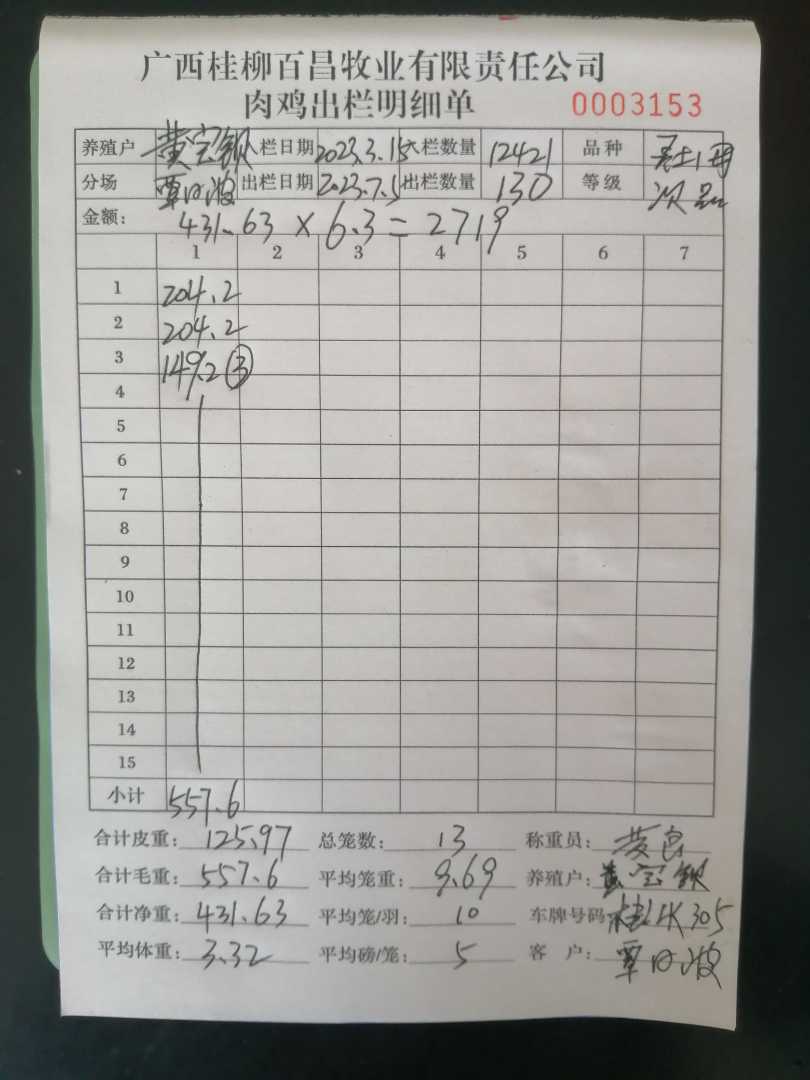 广西桂柳百昌牧业有限责任公司
肉鸡出栏明细单 0003153
养殖户 黄宝钦 入栏日期 2023.3.15 入栏数量 12421 品种
分场 覃日波 出栏日期 2023.7.5 出栏数量 130 等级 次品
金额: 431.63 × 6.3 = 2719
1 2 3 4 5 6 7
1 204.2
2 204.2
3 149.2 ③
4
5
6
7
8
9
10
11
12
13
14
15
小计 557.6
合计皮重: 125.97 总笼数: 13 称重员:
合计毛重: 557.6 平均笼重: 9.69 养殖户: 黄宝钦
合计净重: 431.63 平均笼/羽: 10 车牌号码 桂LK305
平均体重: 3.32 平均磅/笼: 5 客户: 覃日波